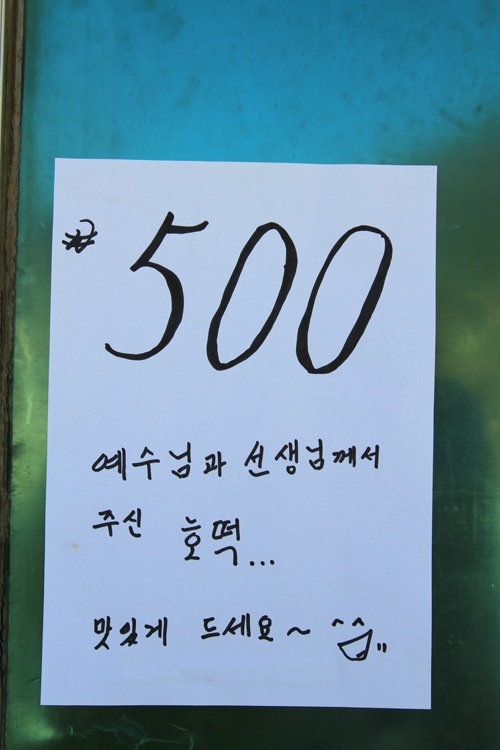 ₩500
예수님과 선생님께서
주신 호떡...
맛있게 드세요~ ^^